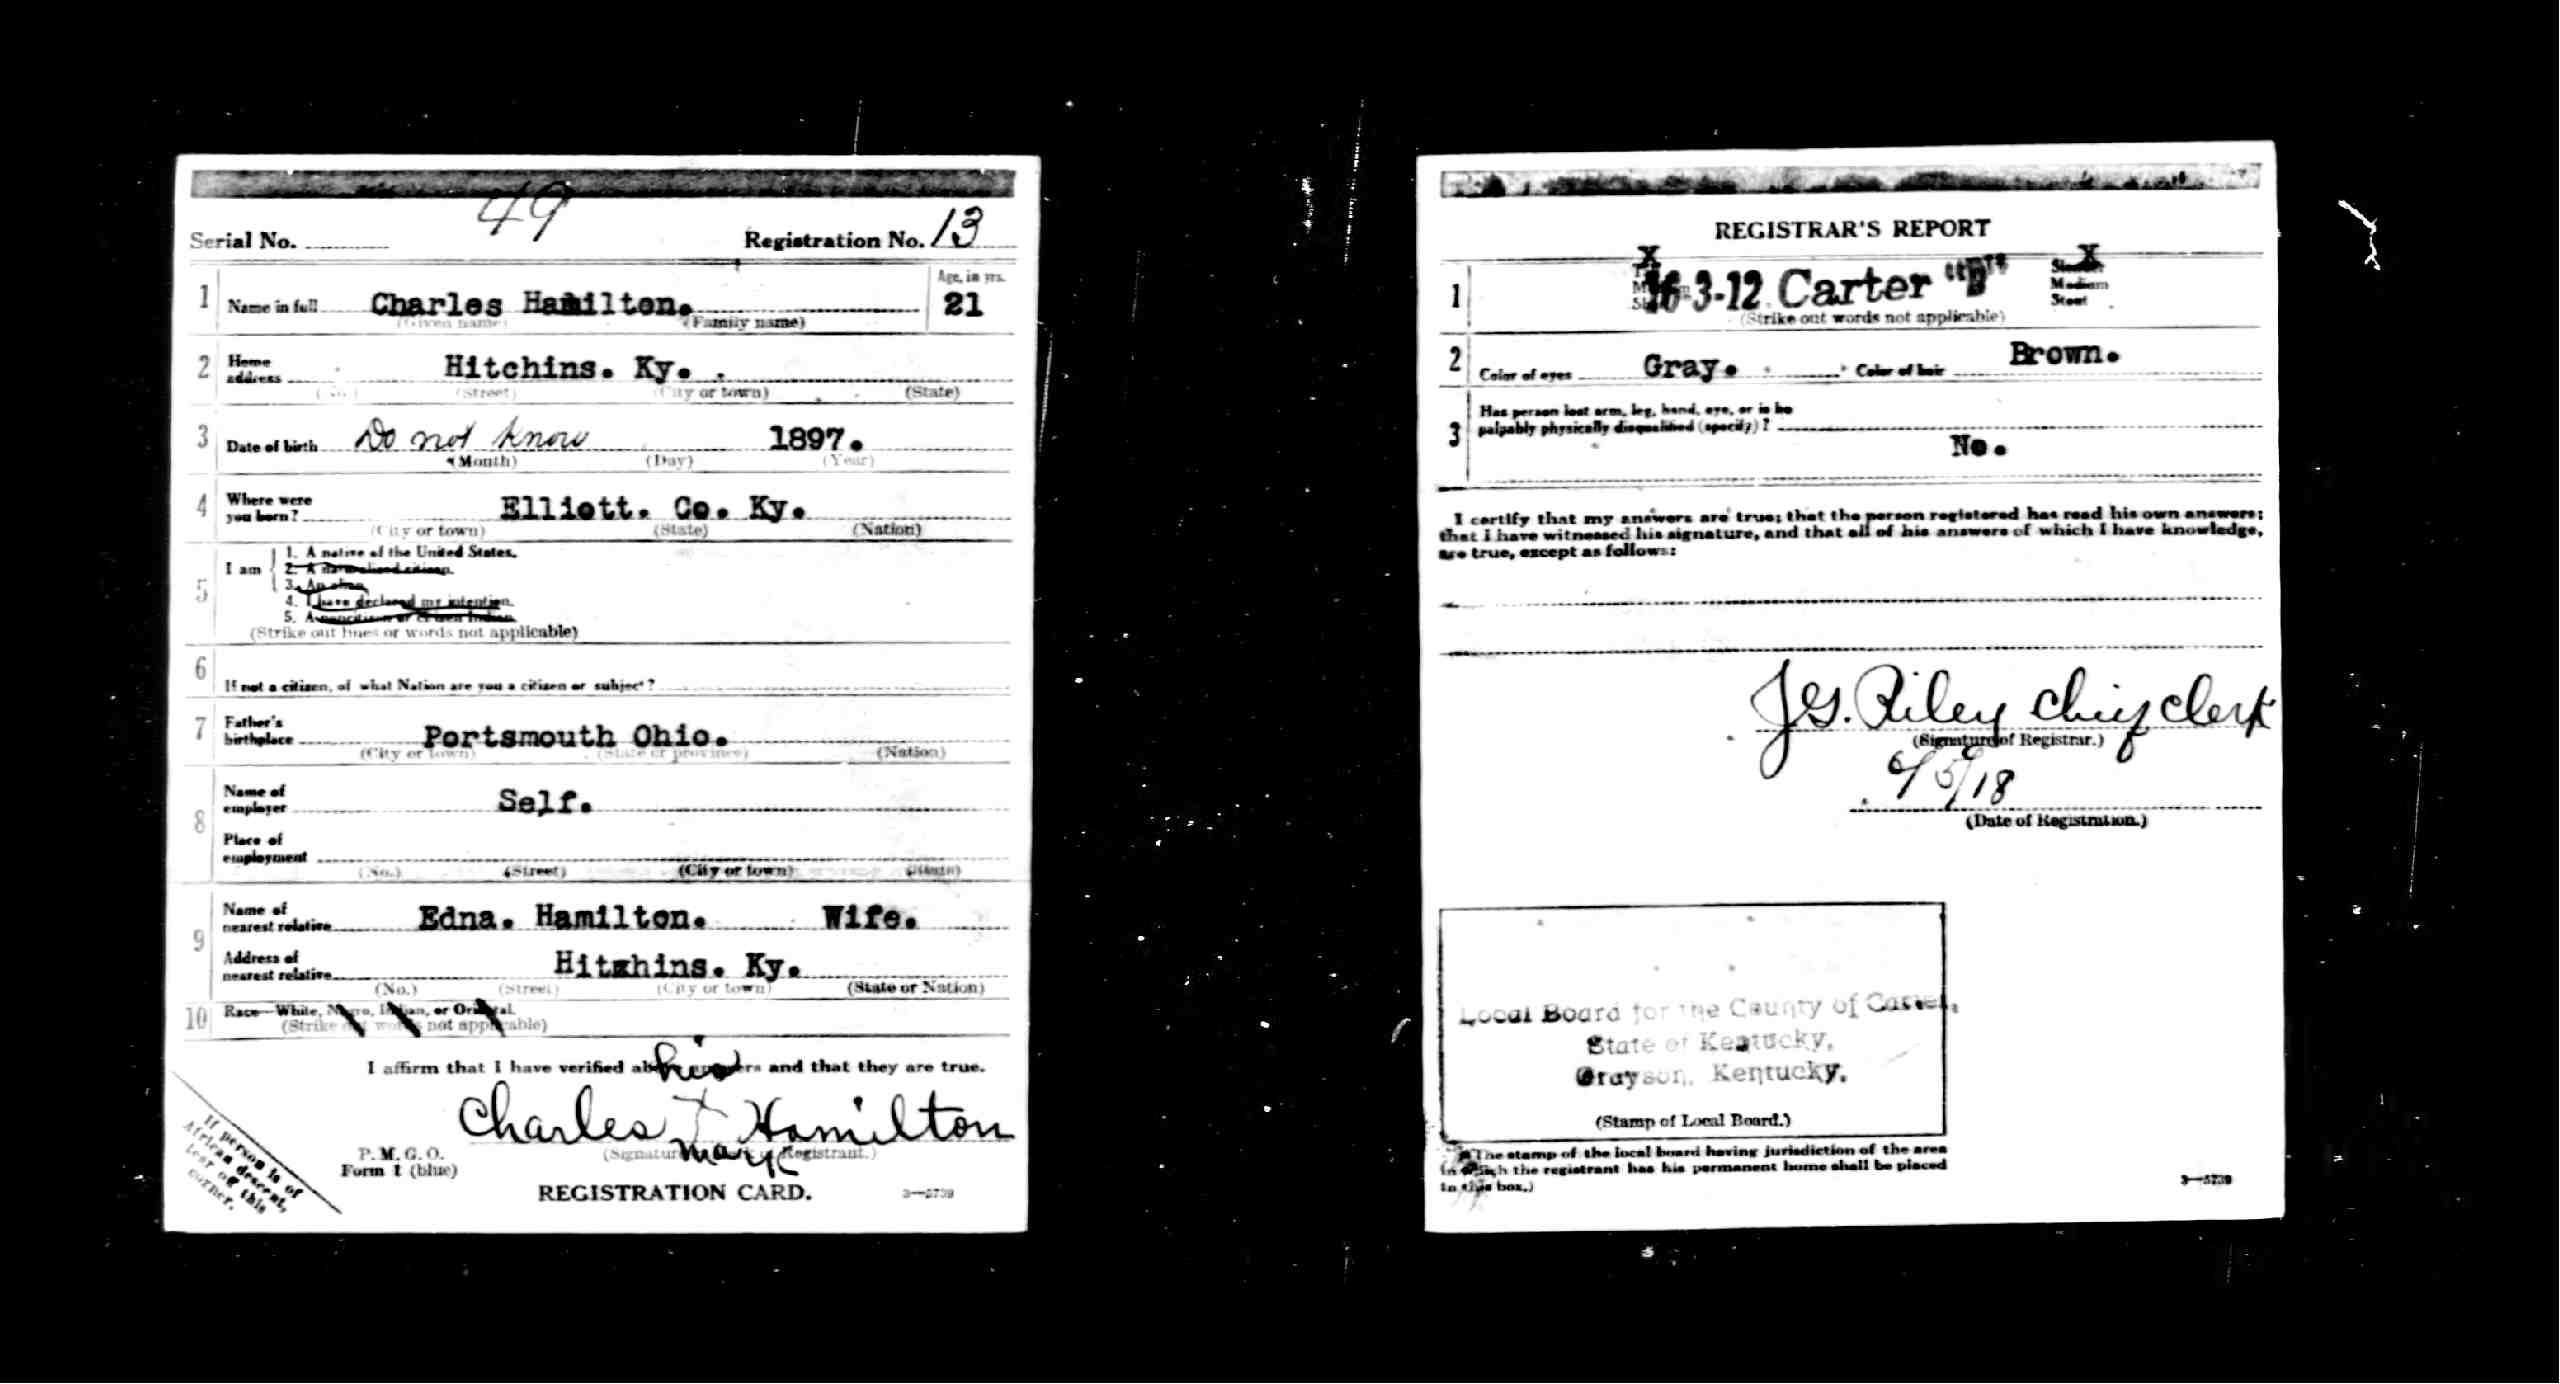 49
Serial No. Registration No. 13
1 Name in full Charles Hamilton. Age, in yrs. 21
(Given name) (Family name)
2 Home address Hitchins. Ky.
(No.) (Street) (City or town) (State)
3 Date of birth Do not know 1897.
(Month) (Day) (Year)
4 Where were you born? Elliott. Co. Ky.
(City or town) (State) (Nation)
5 I am
1. A native of the United States.
2. A naturalized citizen.
3. An alien.
4. I have declared my intention.
5. A noncitizen or citizen Indian.
(Strike out lines or words not applicable)
6
If not a citizen, of what Nation are you a citizen or subject?
7 Father's birthplace Portsmouth Ohio.
(City or town) (State or province) (Nation)
8 Name of employer Self.
Place of employment
(No.) (Street) (City or town) (State)
9 Name of nearest relative Edna. Hamilton. Wife.
Address of nearest relative Hitxhins. Ky.
(No.) (Street) (City or town) (State or Nation)
10 Race—White, Negro, Indian, or Oriental.
(Strike out words not applicable)
his
I affirm that I have verified above answers and that they are true.
Charles X Hamilton
mark
(Signature or mark of Registrant.)
P. M. G. O.
Form 1 (blue)
REGISTRATION CARD. 3—5739
If person is of
African descent,
tear off this
corner.
REGISTRAR'S REPORT
X X
1 16-3-12 Carter "B" Slender
Medium
Stout
(Strike out words not applicable)
2 Color of eyes Gray. Color of hair Brown.
3 Has person lost arm, leg, hand, eye, or is he
palpably physically disqualified (specify)?
No.
I certify that my answers are true; that the person registered has read his own answers;
that I have witnessed his signature, and that all of his answers of which I have knowledge,
are true, except as follows:
J.G. Riley chief clerk
(Signature of Registrar.)
6/5/18
(Date of Registration.)
Local Board for the County of Carter,
State of Kentucky,
Grayson, Kentucky.
(Stamp of Local Board.)
(The stamp of the local board having jurisdiction of the area
in which the registrant has his permanent home shall be placed
in this box.)
3—5739